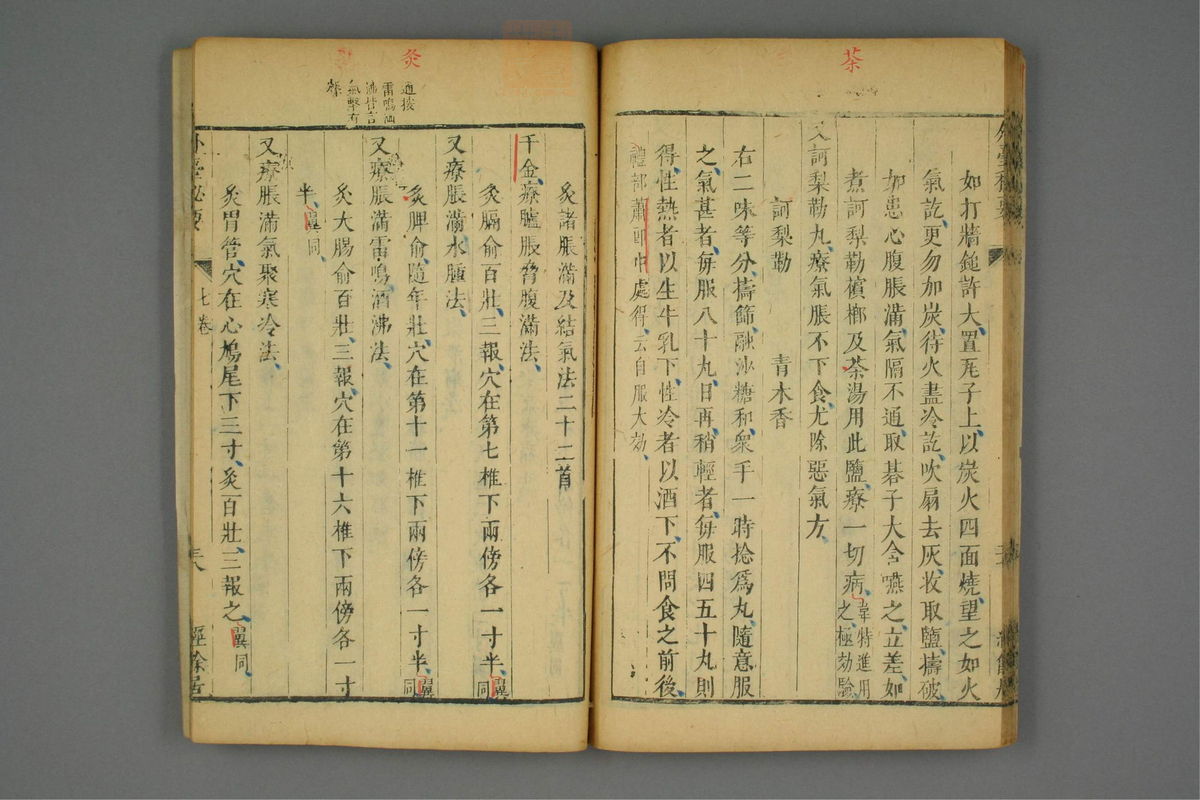 茶
如打牆鎚許大置瓦子上以炭火四面燒望之如火
氣訖更勿加炭待火盡冷訖吹扇去灰收取鹽擣破
如患心腹脹滿氣膈不通取碁子大含嚥之立差如
煮訶梨勒檳榔及茶湯用此鹽療一切病韋特進用
之極効驗
又訶梨勒丸療氣脹不下食尤除惡氣方
訶梨勒 青木香
右二味等分擣篩融沙糖和衆手一時捻爲丸隨意服
之氣甚者每服八十丸日再稍輕者每服四五十丸則
得性熱者以生牛乳下性冷者以酒下不問食之前後
禮部蕭郎中處得云自服大効
灸
灸諸脹滿及結氣法二十二首
千金療臚脹脅腹滿法
灸膈俞百壯三報穴在第七椎下兩傍各一寸半翼同
又療脹滿水腫法
灸脾俞隨年壯穴在第十一椎下兩傍各一寸半翼同
又療脹滿雷鳴酒沸法
灸大腸俞百壯三報穴在第十六椎下兩傍各一寸
半翼同
又療脹滿氣聚寒冷法
灸胃管穴在心鳩尾下三寸灸百壯三報之翼同
外臺秘要 七卷 三八 經餘居